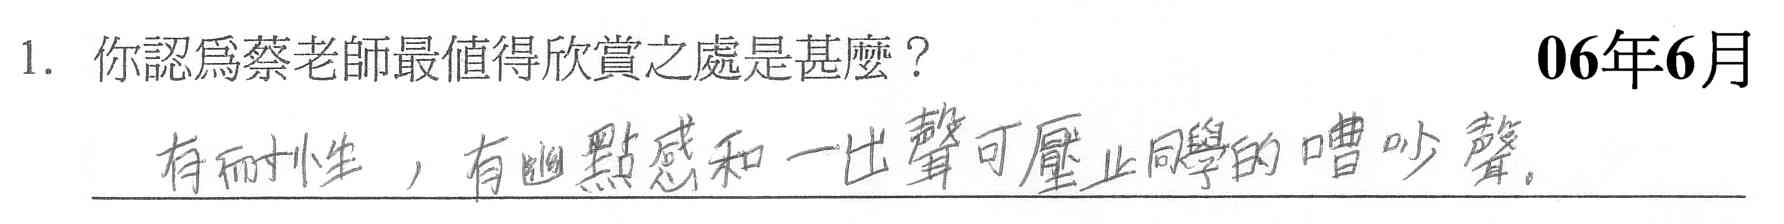 1. 你認爲蔡老師最值得欣賞之處是甚麼？ 06年6月
有耐性，有幽點感和一出聲可壓止同學的嘈吵聲。